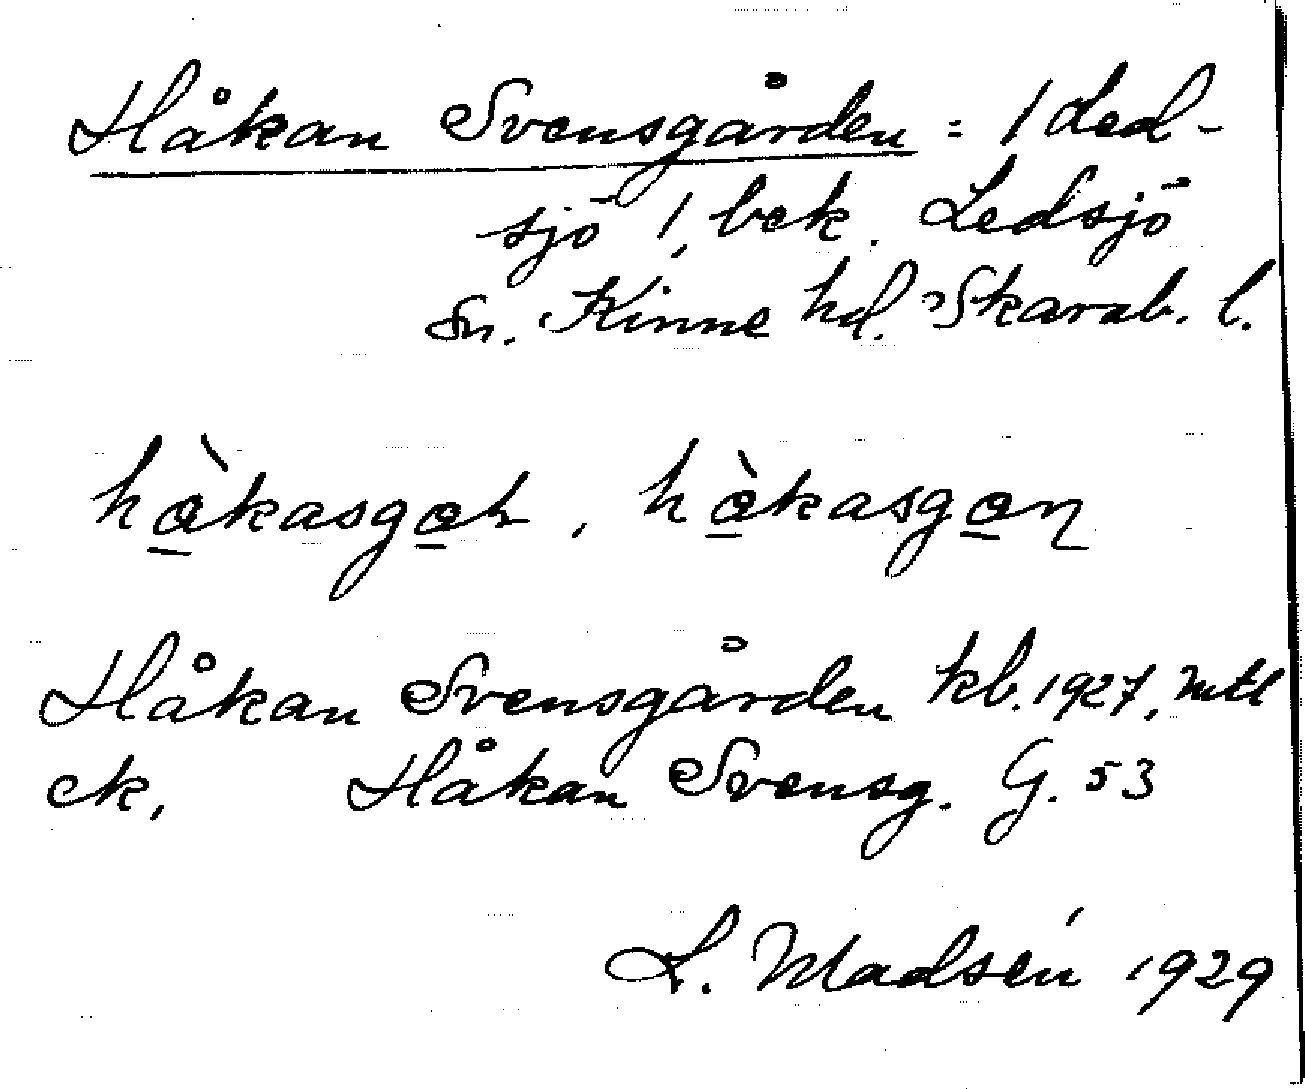 Håkan Svensgården = 1 Led-
sjö 1, bek. Ledsjö
Sn. Kinne hd. Skarab. l.
hàkasgaḷ, hàkasgan
Håkan Svensgården kb. 1927, mtl
ek, Håkan Svensg. G. 53
L. Madsén 1929